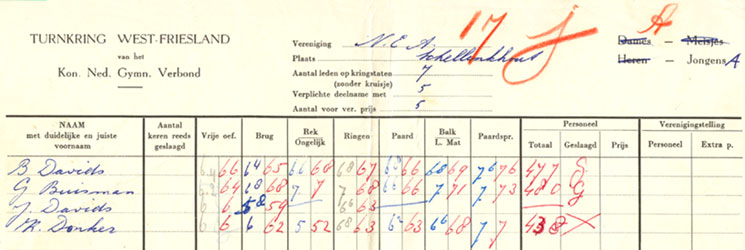 17 j A
TURNKRING WEST-FRIESLAND
van het
Kon. Ned. Gymn. Verbond
Vereniging N.E.A.
Plaats Schellinkhout
Aantal leden op kringstaten 7
(zonder kruisje)
Verplichte deelname met 5
Aantal voor ver. prijs 5
Dames — Meisjes
Heren — Jongens A
NAAM
met duidelijke en juiste
voornaam
Aantal
keren reeds
geslaagd
Vrije oef.
Brug
Rek
Ongelijk
Ringen
Paard
Balk
L. Mat
Paardspr.
Personeel
Totaal
Geslaagd
Prijs
Verenigingstelling
Personeel
Extra p.
B Davids 64 66 64 65 66 66 68 67 66 69 76 76 477 G
G Buisman 62 64 68 68 7 7 7 68 66 66 7 71 7 73 480 G
J. Davids 6 6 58 59 66 63
K. Donker 6 6 6 62 5 52 68 63 62 63 66 68 7 7 438